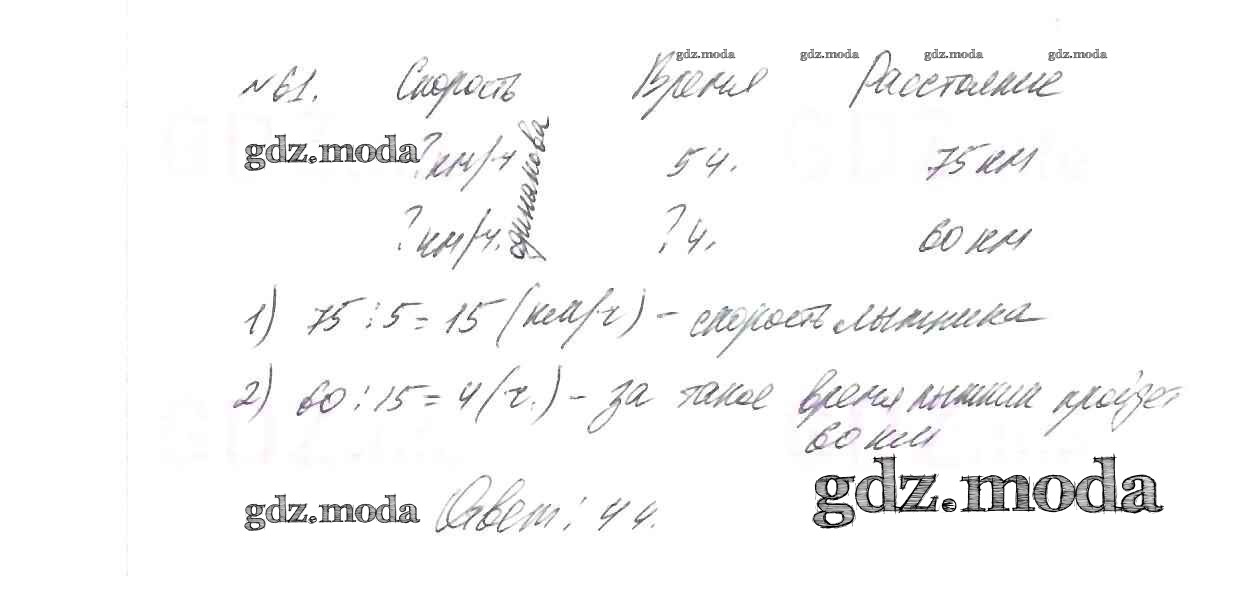 gdz.moda gdz.moda gdz.moda gdz.moda
№61. Скорость Время Расстояние
gdz.moda ? км/ч 5 ч. 75 км
одинакова
? км/ч. ? ч. 60 км
1) 75 : 5 = 15 (км/ч) - скорость лыжника
2) 60 : 15 = 4 (ч.) - за такое время лыжник пройдет
60 км
gdz.moda
gdz.moda Ответ: 4 ч.